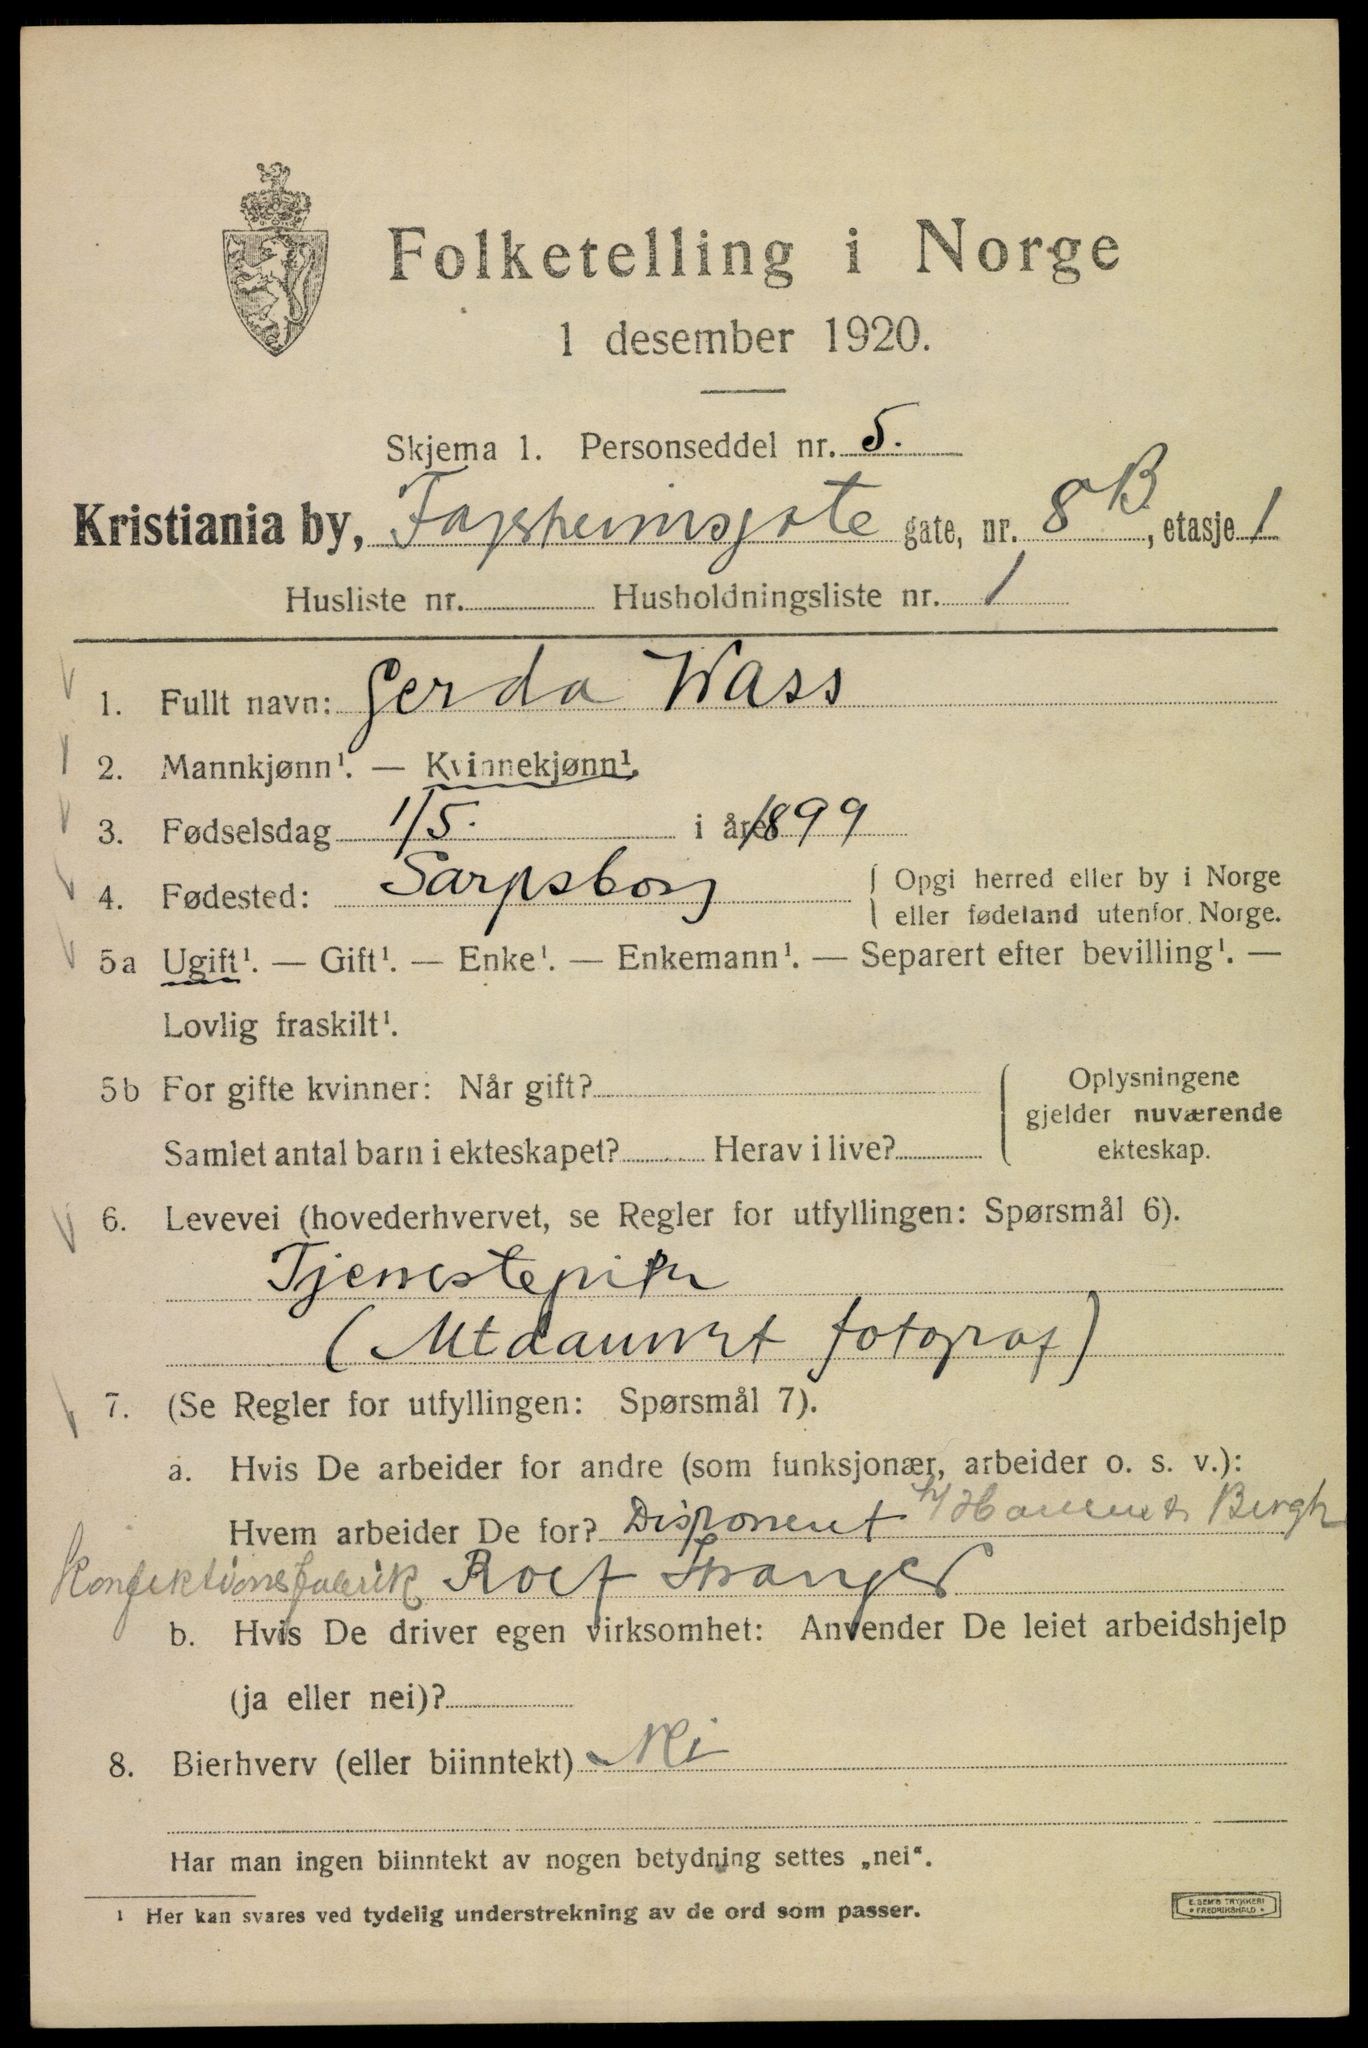 Folketelling i Norge
1 desember 1920.
Skjema 1. Personseddel nr. 5.
Kristiania by, Fagerheimsgate gate, nr. 8 B, etasje 1
Husliste nr. Husholdningsliste nr. 1
1. Fullt navn: Gerda Wass
2. Mannkjønn¹. — Kvinnekjønn¹.
3. Fødselsdag 1/5. i året 1899
4. Fødested: Sarpsborg { Opgi herred eller by i Norge
eller fødeland utenfor Norge.
5a Ugift¹. — Gift¹. — Enke¹. — Enkemann¹. — Separert efter bevilling¹. —
Lovlig fraskilt¹.
5b For gifte kvinner: Når gift?
Samlet antal barn i ekteskapet? Herav i live?
{ Oplysningene
gjelder nuværende
ekteskap.
6. Levevei (hovederhvervet, se Regler for utfyllingen: Spørsmål 6).
Tjenestepike
(Utdannet fotograf)
7. (Se Regler for utfyllingen: Spørsmål 7).
a. Hvis De arbeider for andre (som funksjonær, arbeider o. s. v.):
Hvem arbeider De for? Disponent Bergh
Konfektionsfabrik Rolf Stranger
b. Hvis De driver egen virksomhet: Anvender De leiet arbeidshjelp
(ja eller nei)?
8. Bierhverv (eller biinntekt) Nei
Har man ingen biinntekt av nogen betydning settes „nei“.
¹ Her kan svares ved tydelig understrekning av de ord som passer.
E. SEM'S TRYKKERI
• FREDRIKSHALD •